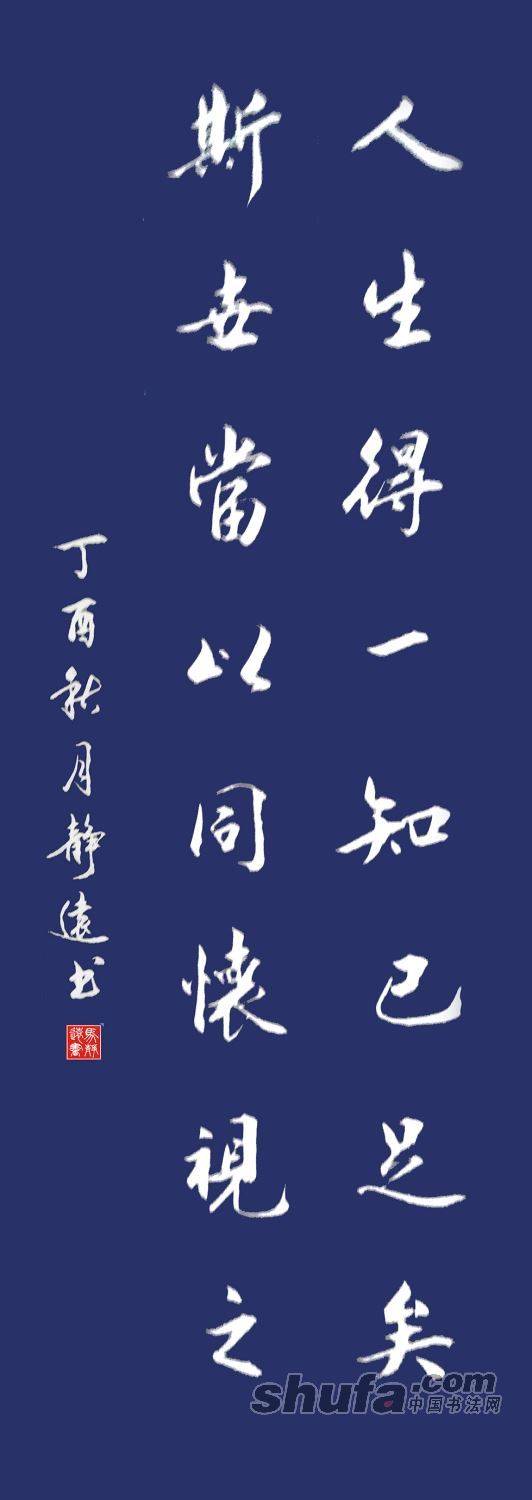 人生得一知己足矣
斯世當以同懷視之
丁酉秋月静遠书
馬静
遠書
shufa.com
中国书法网